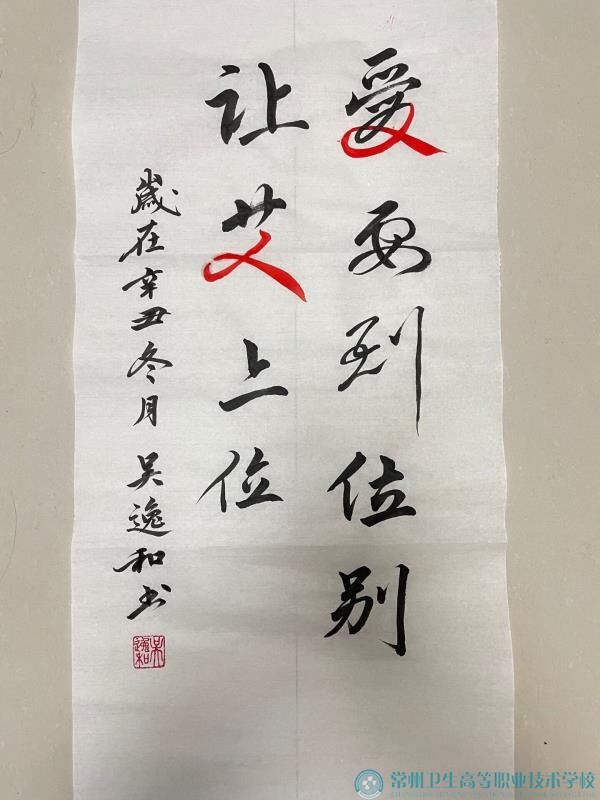 爱要到位别
让艾上位
岁在辛丑冬月 吴逸和书
吴逸和
常州卫生高等职业技术学校